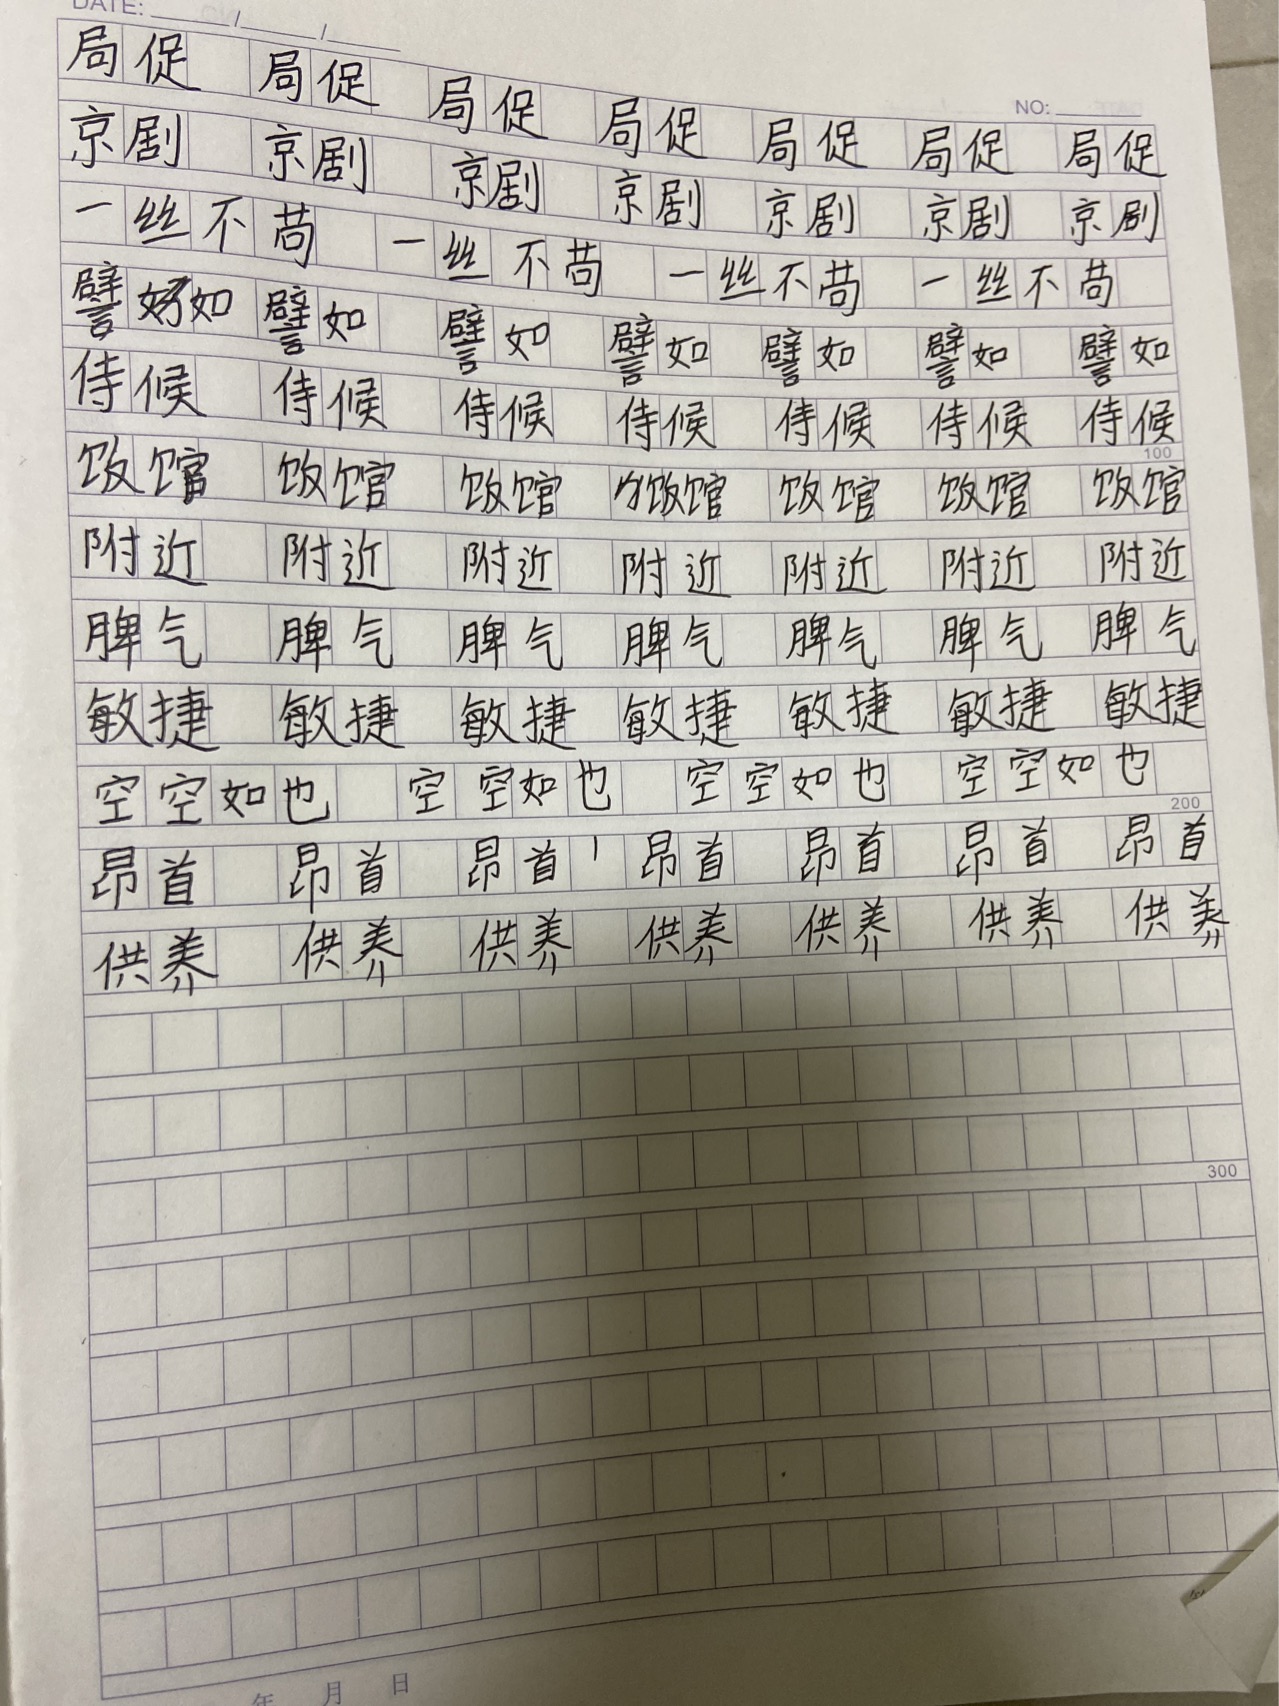 DATE: / /
NO:
局促 局促 局促 局促 局促 局促 局促
京剧 京剧 京剧 京剧 京剧 京剧 京剧
一丝不苟 一丝不苟 一丝不苟 一丝不苟
譬如 譬如 譬如 譬如 譬如 譬如 譬如
侍候 侍候 侍候 侍候 侍候 侍候 侍候
100
饭馆 饭馆 饭馆 饭馆 饭馆 饭馆 饭馆
附近 附近 附近 附近 附近 附近 附近
脾气 脾气 脾气 脾气 脾气 脾气 脾气
敏捷 敏捷 敏捷 敏捷 敏捷 敏捷 敏捷
空空如也 空空如也 空空如也 空空如也
200
昂首 昂首 昂首 昂首 昂首 昂首 昂首
供养 供养 供养 供养 供养 供养 供养
300
年 月 日